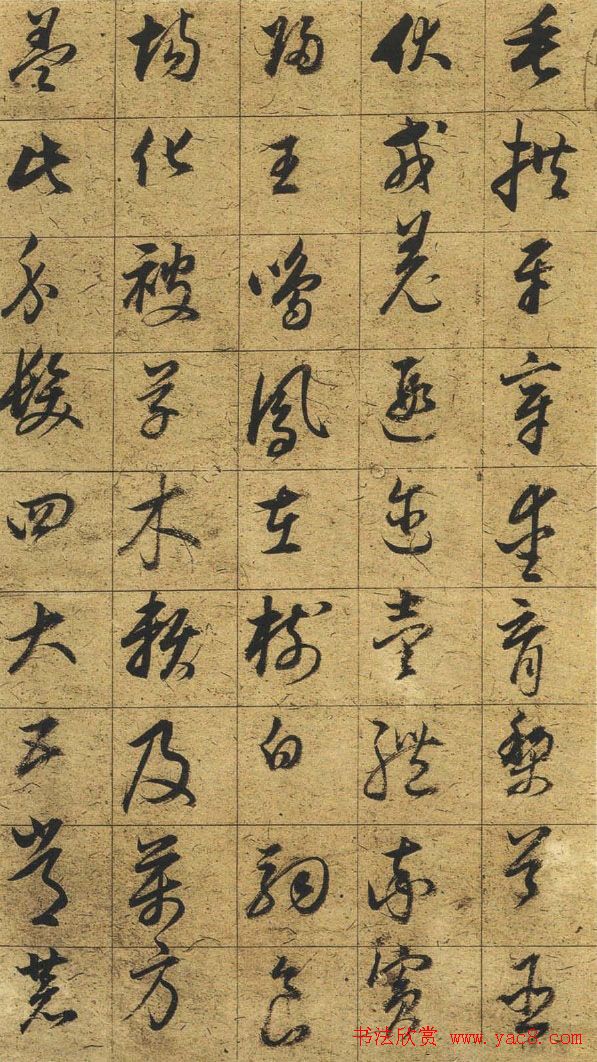 垂拱平章愛育黎首臣
伏戎羌遐邇壹體率賓
歸王鳴鳳在樹白駒食
場化被草木賴及萬方
蓋此身髮四大五常恭
书法欣赏 www.yac8.com